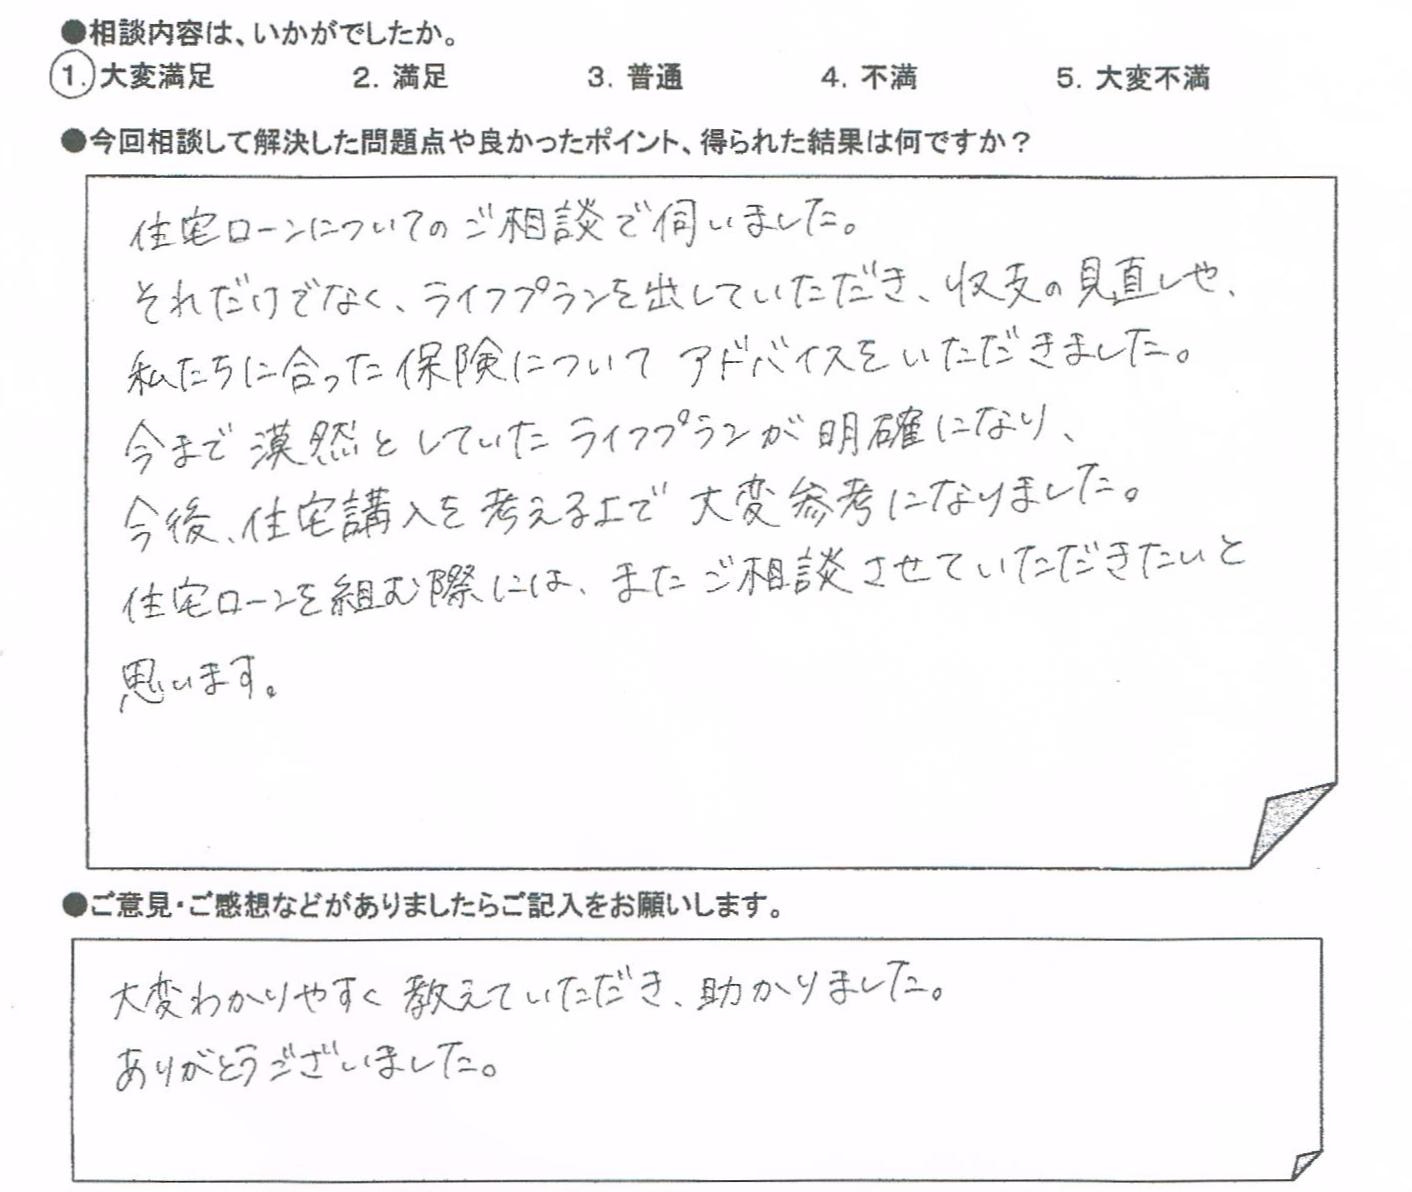 ●相談内容は、いかがでしたか。
1. 大変満足 2. 満足 3. 普通 4. 不満 5. 大変不満
●今回相談して解決した問題点や良かったポイント、得られた結果は何ですか？
住宅ローンについてのご相談で伺いました。
それだけでなく、ライフプランを出していただき、収支の見直しや、
私たちに合った保険についてアドバイスをいただきました。
今まで漠然としていたライフプランが明確になり、
今後、住宅講入を考える上で大変参考になりました。
住宅ローンを組む際には、またご相談させていただきたいと
思います。
●ご意見・ご感想などがありましたらご記入をお願いします。
大変わかりやすく教えていただき、助かりました。
ありがとうございました。